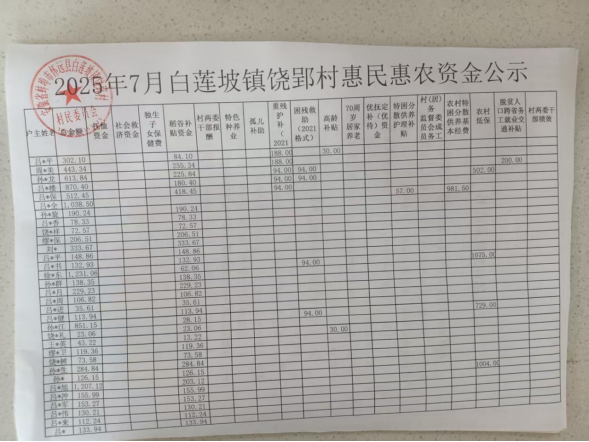 2025年7月白莲坡镇饶郢村惠民惠农资金公示
户主姓名 总金额 抚恤资金 社会救济资金 独生子女保健费 稻谷补贴资金 村两委干部报酬 特色种养业 孤儿补助 重残护补(2021 困残救助(2021格式) 高龄补贴 70周岁居家养老 优抚定补(优待)资金 特困分散供养护理补贴 村(居)务监督委员会成员务工 农村特困分散供养基本经费 农村低保 脱贫人口跨省务工就业交通补贴 村两委干部绩效
吕*年 302.10 84.10 188.00 30.00
周*美 443.34 255.34 188.00 200.00
孙*龙 613.84 225.84 94.00 94.00 502.00
吕*楼 870.40 180.40 94.00 94.00
吕*保 512.45 418.45 57.00 981.50
吕*全 1,038.50
孙*陵 190.24 190.24
吕*香 78.33 78.33
饶*祥 72.57 72.57
缪*保 206.51 206.51
刘* 333.67 333.67
吕*平 148.86 148.86 1075.00
吕*书 132.93 132.93 94.00
徐*东 1,231.06 62.06
孙*群 138.35 138.35
吕*月 229.23 229.23
吕*周 106.82 106.82
吕*进 35.61 35.61 729.00
吕*健 113.94 113.94 94.00
孙*江 851.15 28.15
饶*礼 23.06 23.06 30.00
王*英 43.22 13.22
缪*卫 119.36 119.36
缪*树 73.58 73.58 1004.00
孙*生 284.84 284.84
孙* 126.15 126.15
吕*旭 1,207.12 203.12
吕*坤 155.99 155.99
吕*军 153.27 153.27
吕*伟 130.21 130.21
吕*东 112.24 112.24
吕* 133.94 133.94